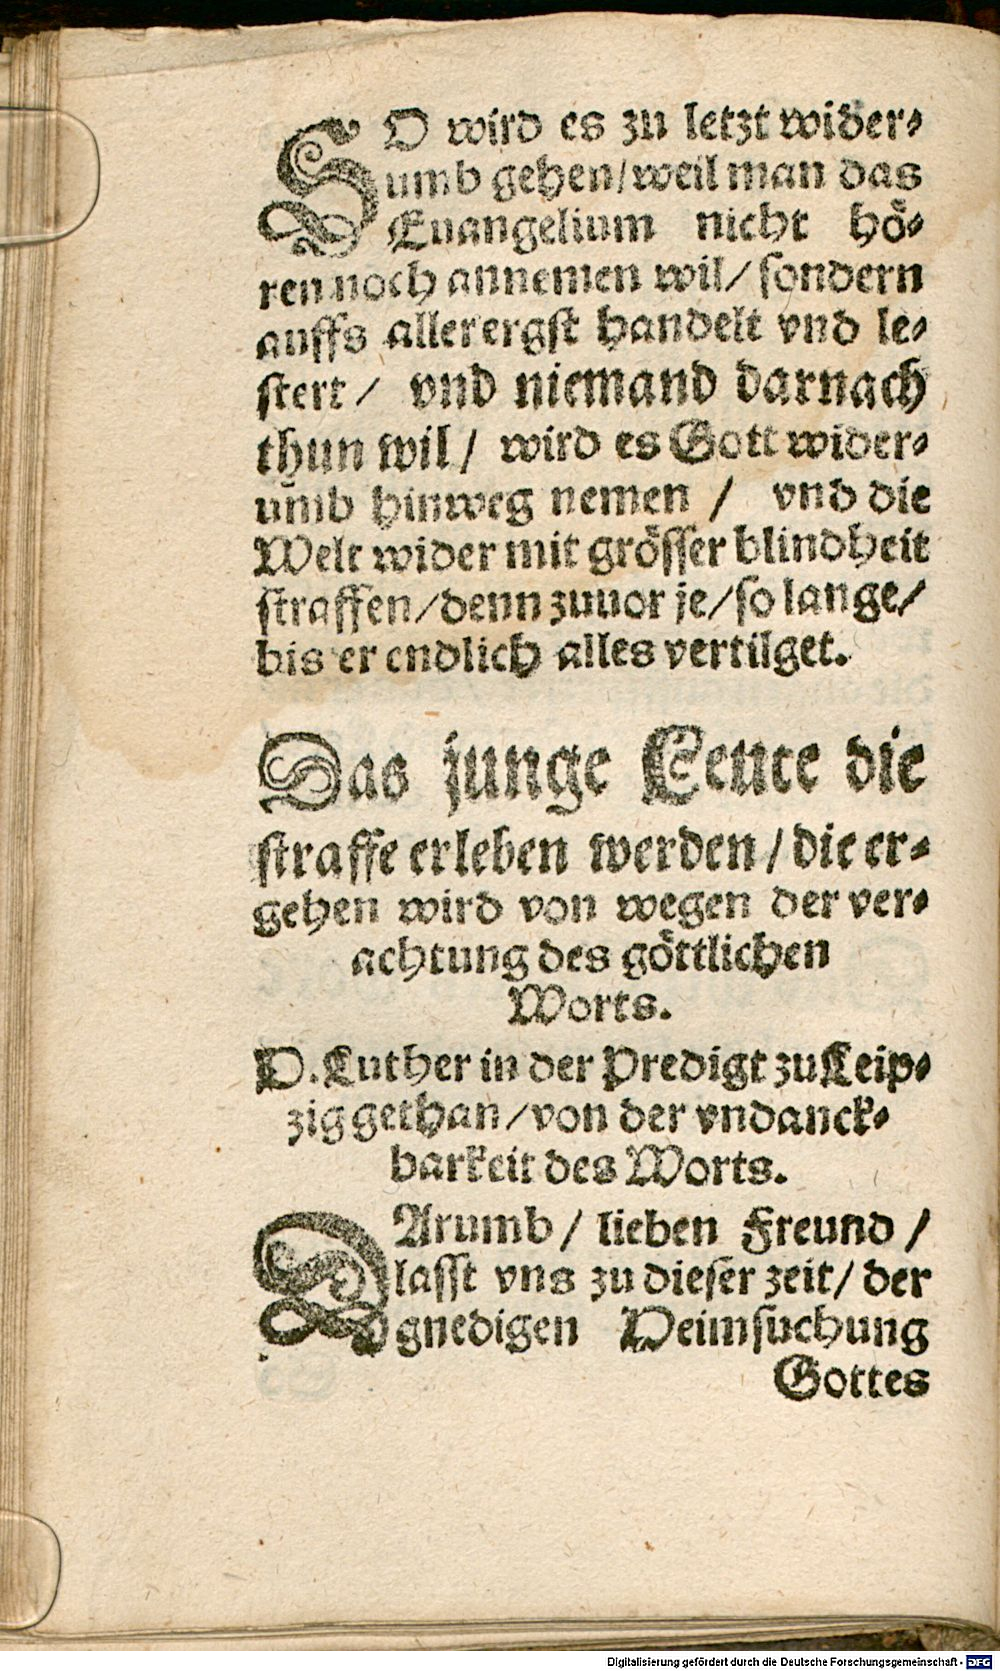 SO wird es zu letzt wider⸗
umb gehen/ weil man das
Euangelium nicht hö⸗
ren noch annemen wil/ sondern
auffs aller ergst handelt vnd le⸗
stert/ vnd niemand darnach
thun wil/ wird es Gott wider⸗
umb hinweg nemen / vnd die
Welt wider mit grösser blindheit
straffen/ denn zuuor je/ so lange/
bis er endlich alles vertilget.
Das junge Leute die
straffe erleben werden/ die er⸗
gehen wird von wegen der ver⸗
achtung des göttlichen
Worts.
D. Luther in der Predigt zu Leip⸗
zig gethan/ von der vndanck⸗
barkeit des Worts.
DArumb/ lieben Freund/
lasst vns zu dieser zeit/ der
gnedigen Heimsuchung
Gottes
Digitalisierung gefördert durch die Deutsche Forschungsgemeinschaft - DFG